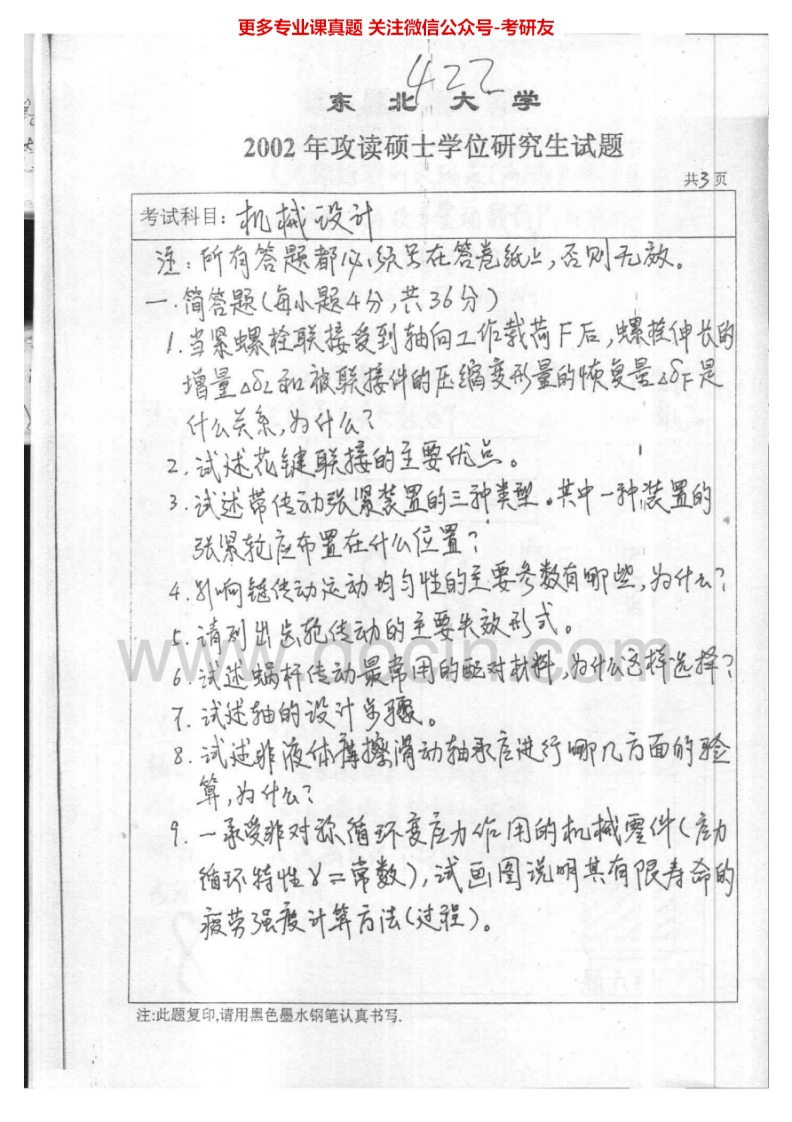 更多专业课真题 关注微信公众号-考研友
422
东 北 大 学
2002 年攻读硕士学位研究生试题
共3页
考试科目: 机械设计
注:所有答题都必须写在答卷纸上,否则无效。
一.简答题(每小题4分,共36分)
1.当紧螺栓联接受到轴向工作载荷F后,螺栓伸长的
增量△δL和被联接件的压缩变形量的恢复量△δF是
什么关系,为什么?
2.试述花键联接的主要优点。
3.试述带传动张紧装置的三种类型。其中一种装置的
张紧轮应布置在什么位置?
4.影响链传动运动均匀性的主要参数有哪些,为什么?
5.请列出齿轮传动的主要失效形式。
www.docin.com
6.试述蜗杆传动最常用的配对材料,为什么这样选择?
7.试述轴的设计步骤。
8.试述非液体摩擦滑动轴承应进行哪几方面的验
算,为什么?
9.一承受非对称循环变应力作用的机械零件(应力
循环特性γ=常数),试画图说明其有限寿命的
疲劳强度计算方法(过程)。
注:此题复印,请用黑色墨水钢笔认真书写.